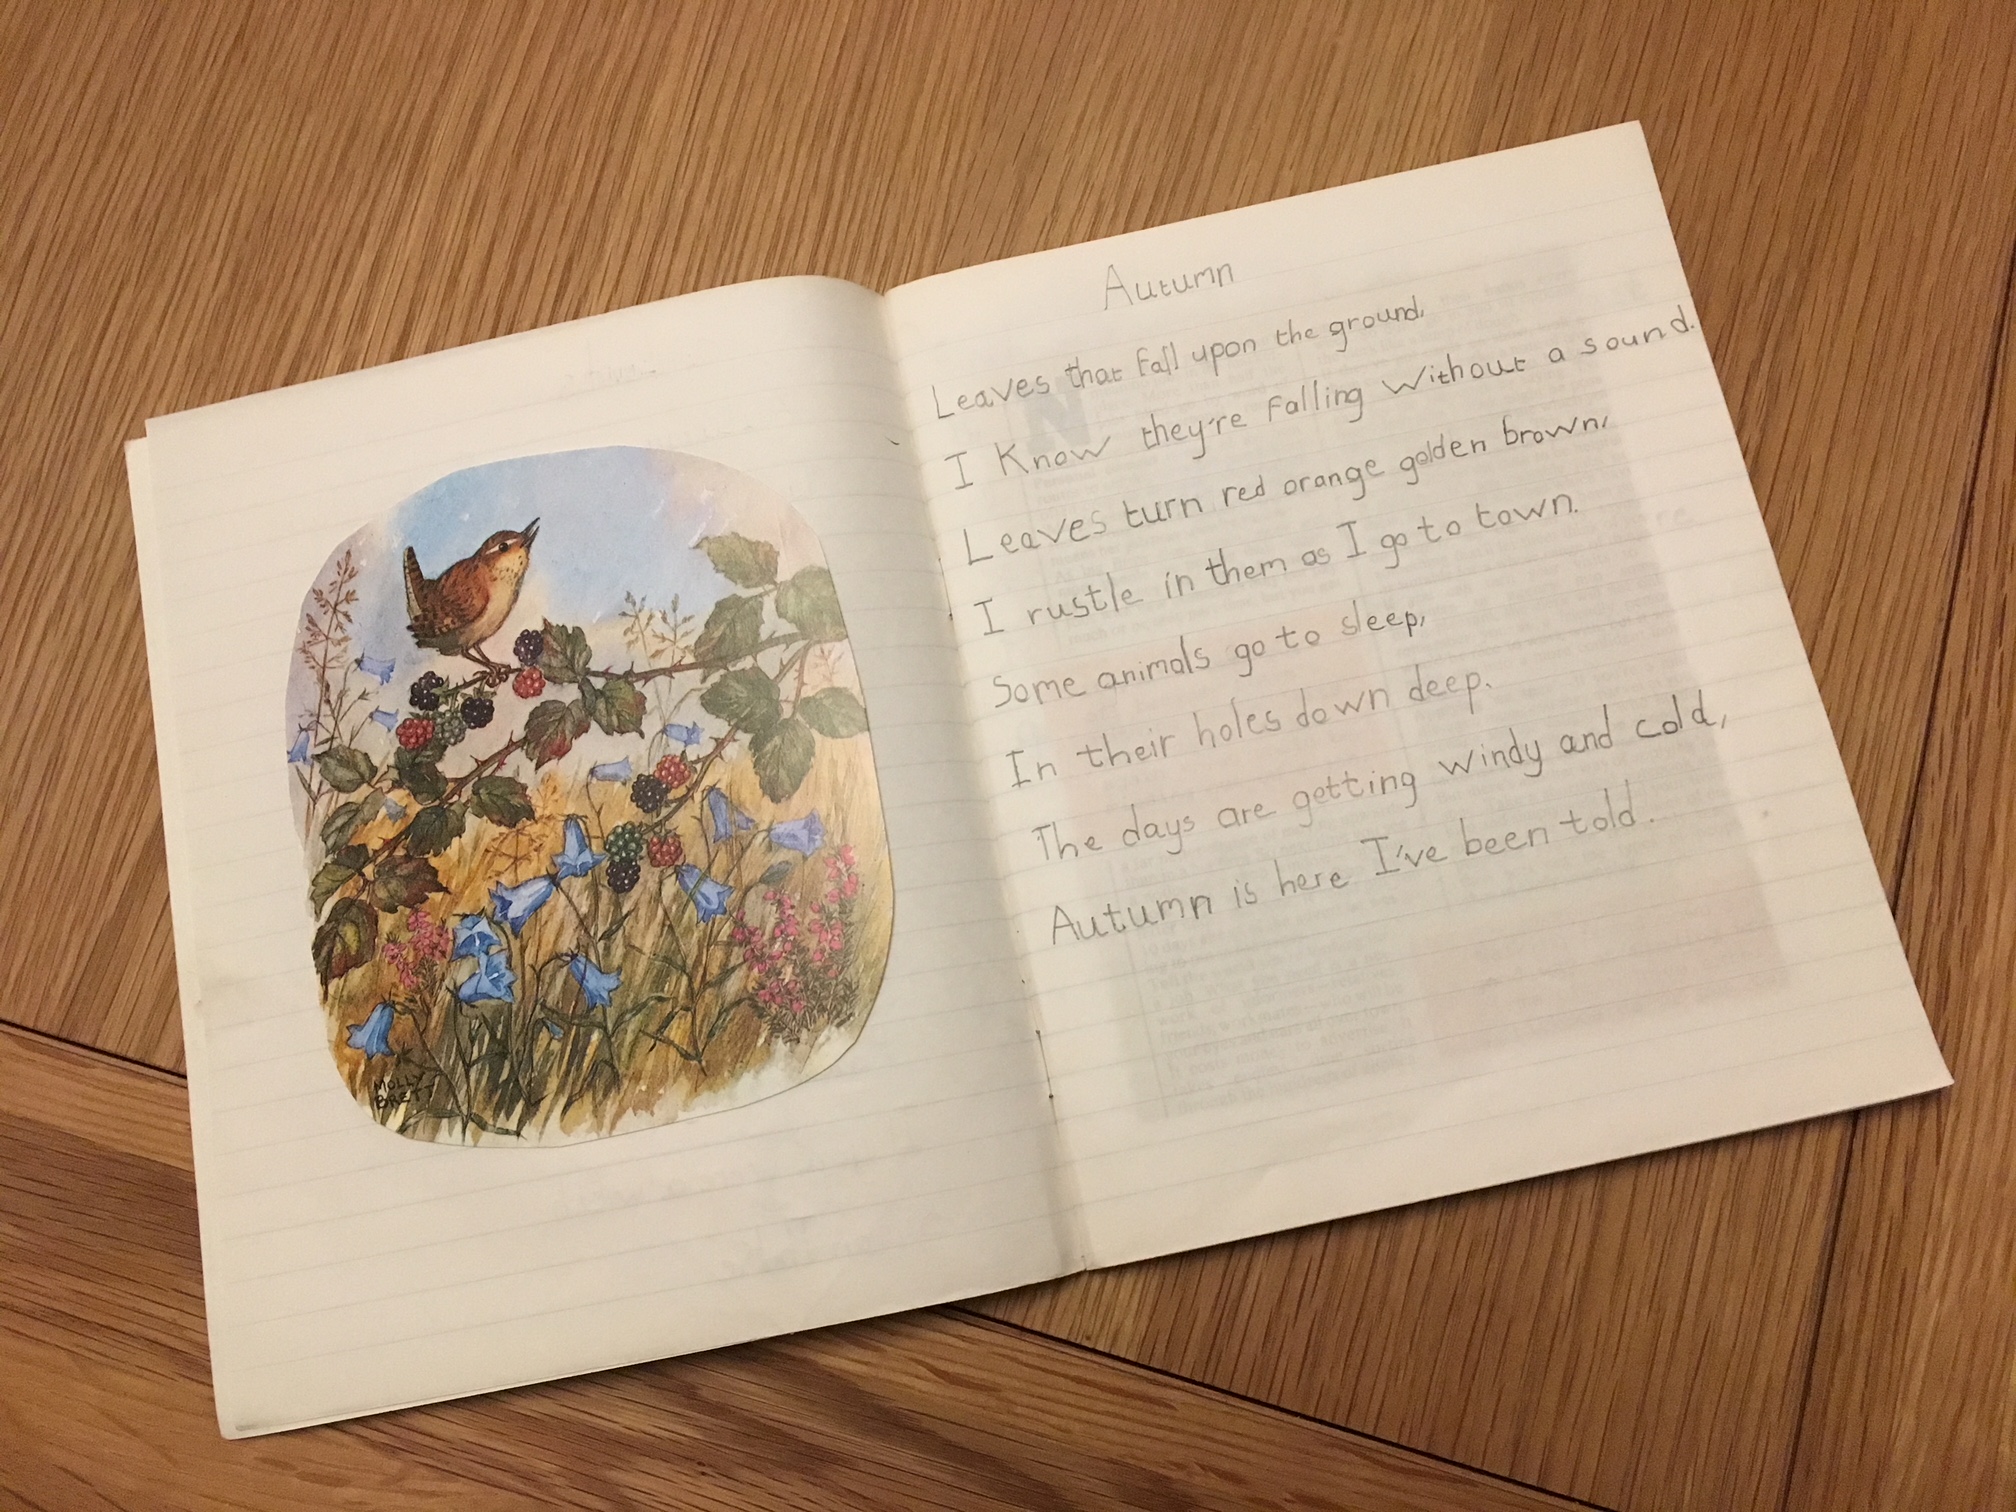 MOLLY
BRETT
Autumn
Leaves that fall upon the ground,
I Know they're falling without a sound.
Leaves turn red orange golden brown,
I rustle in them as I go to town.
Some animals go to sleep,
In their holes down deep.
The days are getting windy and cold,
Autumn is here I've been told.